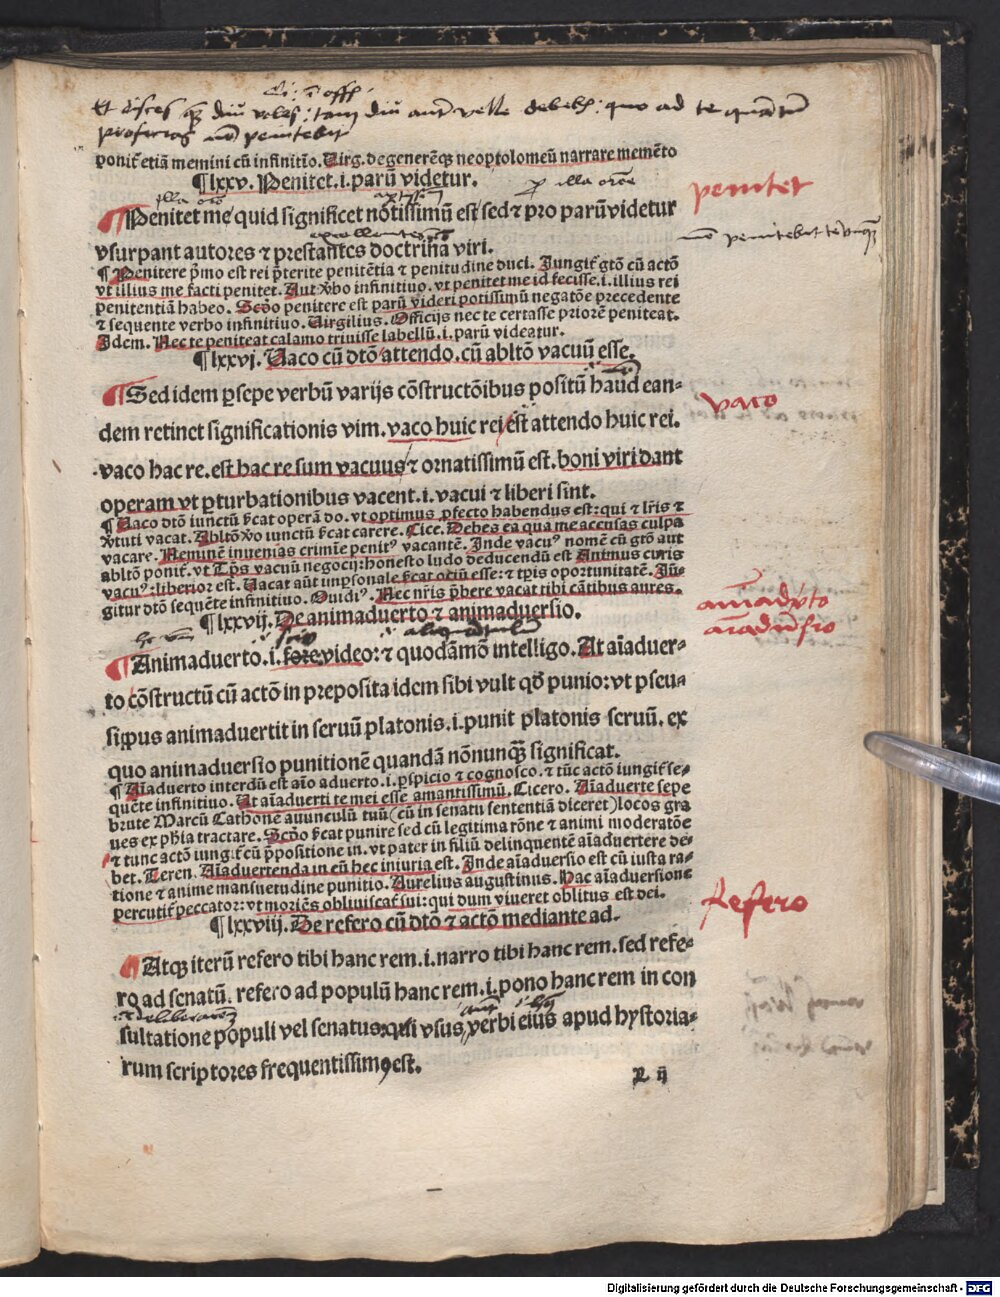 Et disces quamdiu voles: tam diu aut velle debebis: quo ad te quantum
proficias non penitebit
ponit̃ etiā memini cū infinitio. Uirg. degenerēq̃ neoptolomeū narrare memēto
¶lxxv. Penitet.i.parū videtur.
penitet
¶Penitet me quid significet notissimū est sed ⁊ pro parū videtur
vsurpant autores ⁊ prestantes doctrina viri.
¶ Penitere p̄mo est rei p̄terite penitētia ⁊ penitudine duci. Jungit̃ gtō cū actō
vt illius me facti penitet. Aut v̄bo infinitiuo. vt penitet me id fecisse.i. illius rei
penitentiā habeo. Scōo penitere est parū videri potissimū negatōe precedente
⁊ sequente verbo infinitiuo. Uirgilius. Officijs nec te certasse priorē peniteat.
Jdem. Nec te peniteat calamo triuisse labellū.i. parū videatur.
¶lxxvj. Uaco cū dtō attendo.cū abltō vacuū esse.
¶Sed idem p̱sepe verbū varijs cōstructōibus positū haud ean-
vaco
dem retinet significationis vim. vaco huic rei est attendo huic rei.
vaco hac re.est hac re sum vacuus ⁊ ornatissimū est.boni viri dant
operam vt p̱turbationibus vacent.i. vacui ⁊ liberi sint.
¶ Uaco dtō iunctū s̄cat operā do. vt optimus p̱fecto habendus est: qui ⁊ lr̄is ⁊
v̄tuti vacat. Abltō v̄o iunctū s̄cat carere. Cice. Debes ea qua me accusas culpa
vacare. Neminē inuenias crimīe penitꝰ vacantē. Jnde vacuꝰ nomē cū gtō aut
abltō ponit̃. vt Tp̄s vacuū negocij: honesto ludo deducendū est Animus curis
vacuꝰ: liberior est. Uacat aūt imp̱sonale s̄cat ociū esse: ⁊ tp̄is oportunitatē. Jū
gitur dtō sequēte infinitiuo. Ouidiꝰ. Nec nr̄is p̄bere vacat tibi cātibus aures.
¶lxxvij. De animaduerto ⁊ animaduersio.
¶Animaduerto.i. fore video: ⁊ quodāmō intelligo. At aīaduer-
to cōstructū cū actō in preposita idem sibi vult qđ punio: vt pseu-
sippus animaduertit in seruū platonis.i. punit platonis seruū. ex
quo animaduersio punitionē quandā nōnunq̃ significat.
¶ Aīaduerto interdū est aīo aduerto.i. p̱spicio ⁊ cognosco. ⁊ tūc actō iungit̃ se-
quēte infinitiuo. At aīaduerti te mei esse amantissimū. Cicero. Aīaduerte sepe
brute Marcū Cathonē auunculū tuū (cū in senatu sententiā diceret) locos gra
ues ex ph̄ia tractare. Scōo s̄cat punire sed cū legitima rōne ⁊ animi moderatōe
⁊ tunc actō iungit̃ cū p̄positione in. vt pater in filiū delinquentē aīaduertere de-
bet. Teren. Aīaduertenda in eū hec iniuria est. Jnde aīaduersio est cū iusta ra-
tione ⁊ anime mansuetudine punitio. Aurelius augustinus. Hac aīaduersione
percutit̃ peccator: vt moriēs obliuiscat̃ sui: qui dum viueret oblitus est dei.
Refero
¶lxxviij. De refero cū dtō ⁊ actō mediante ad.
¶Atq̃ iterū refero tibi hanc rem.i. narro tibi hanc rem. sed refe-
ro ad senatū. refero ad populū hanc rem.i. pono hanc rem in con
sultatione populi vel senatus: qui vsus verbi eius apud hystoria-
rum scriptores frequentissimꝰ est.
R ij
Digitalisierung gefördert durch die Deutsche Forschungsgemeinschaft - DFG